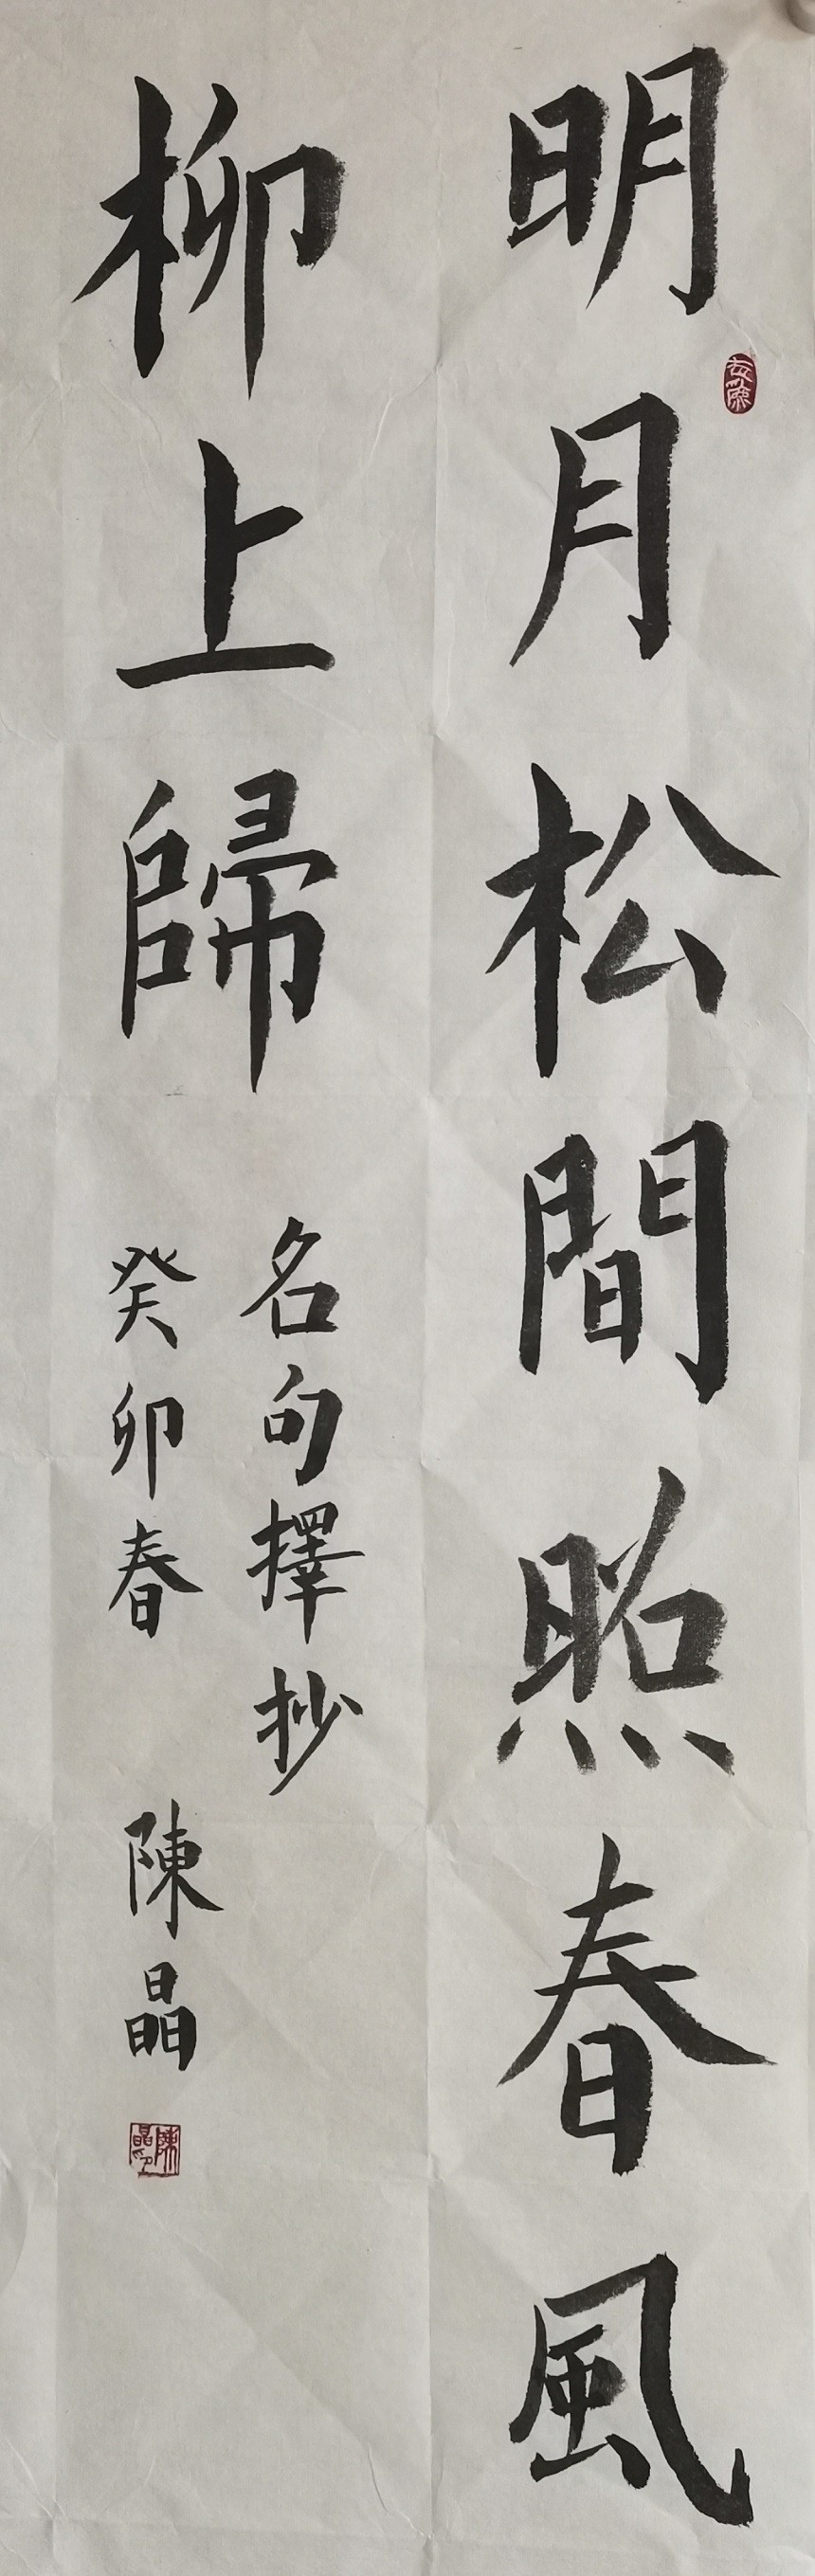 明月松間照春風
柳上歸
名句擇抄
癸卯春 陳晶
陳晶印